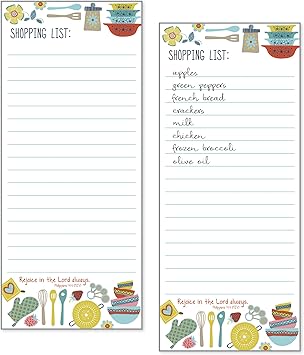 SHOPPING LIST:
Rejoice in the Lord always.
SHOPPING LIST:
apples
green peppers
french bread
crackers
milk
chicken
frozen broccoli
olive oil
Rejoice in the Lord always.